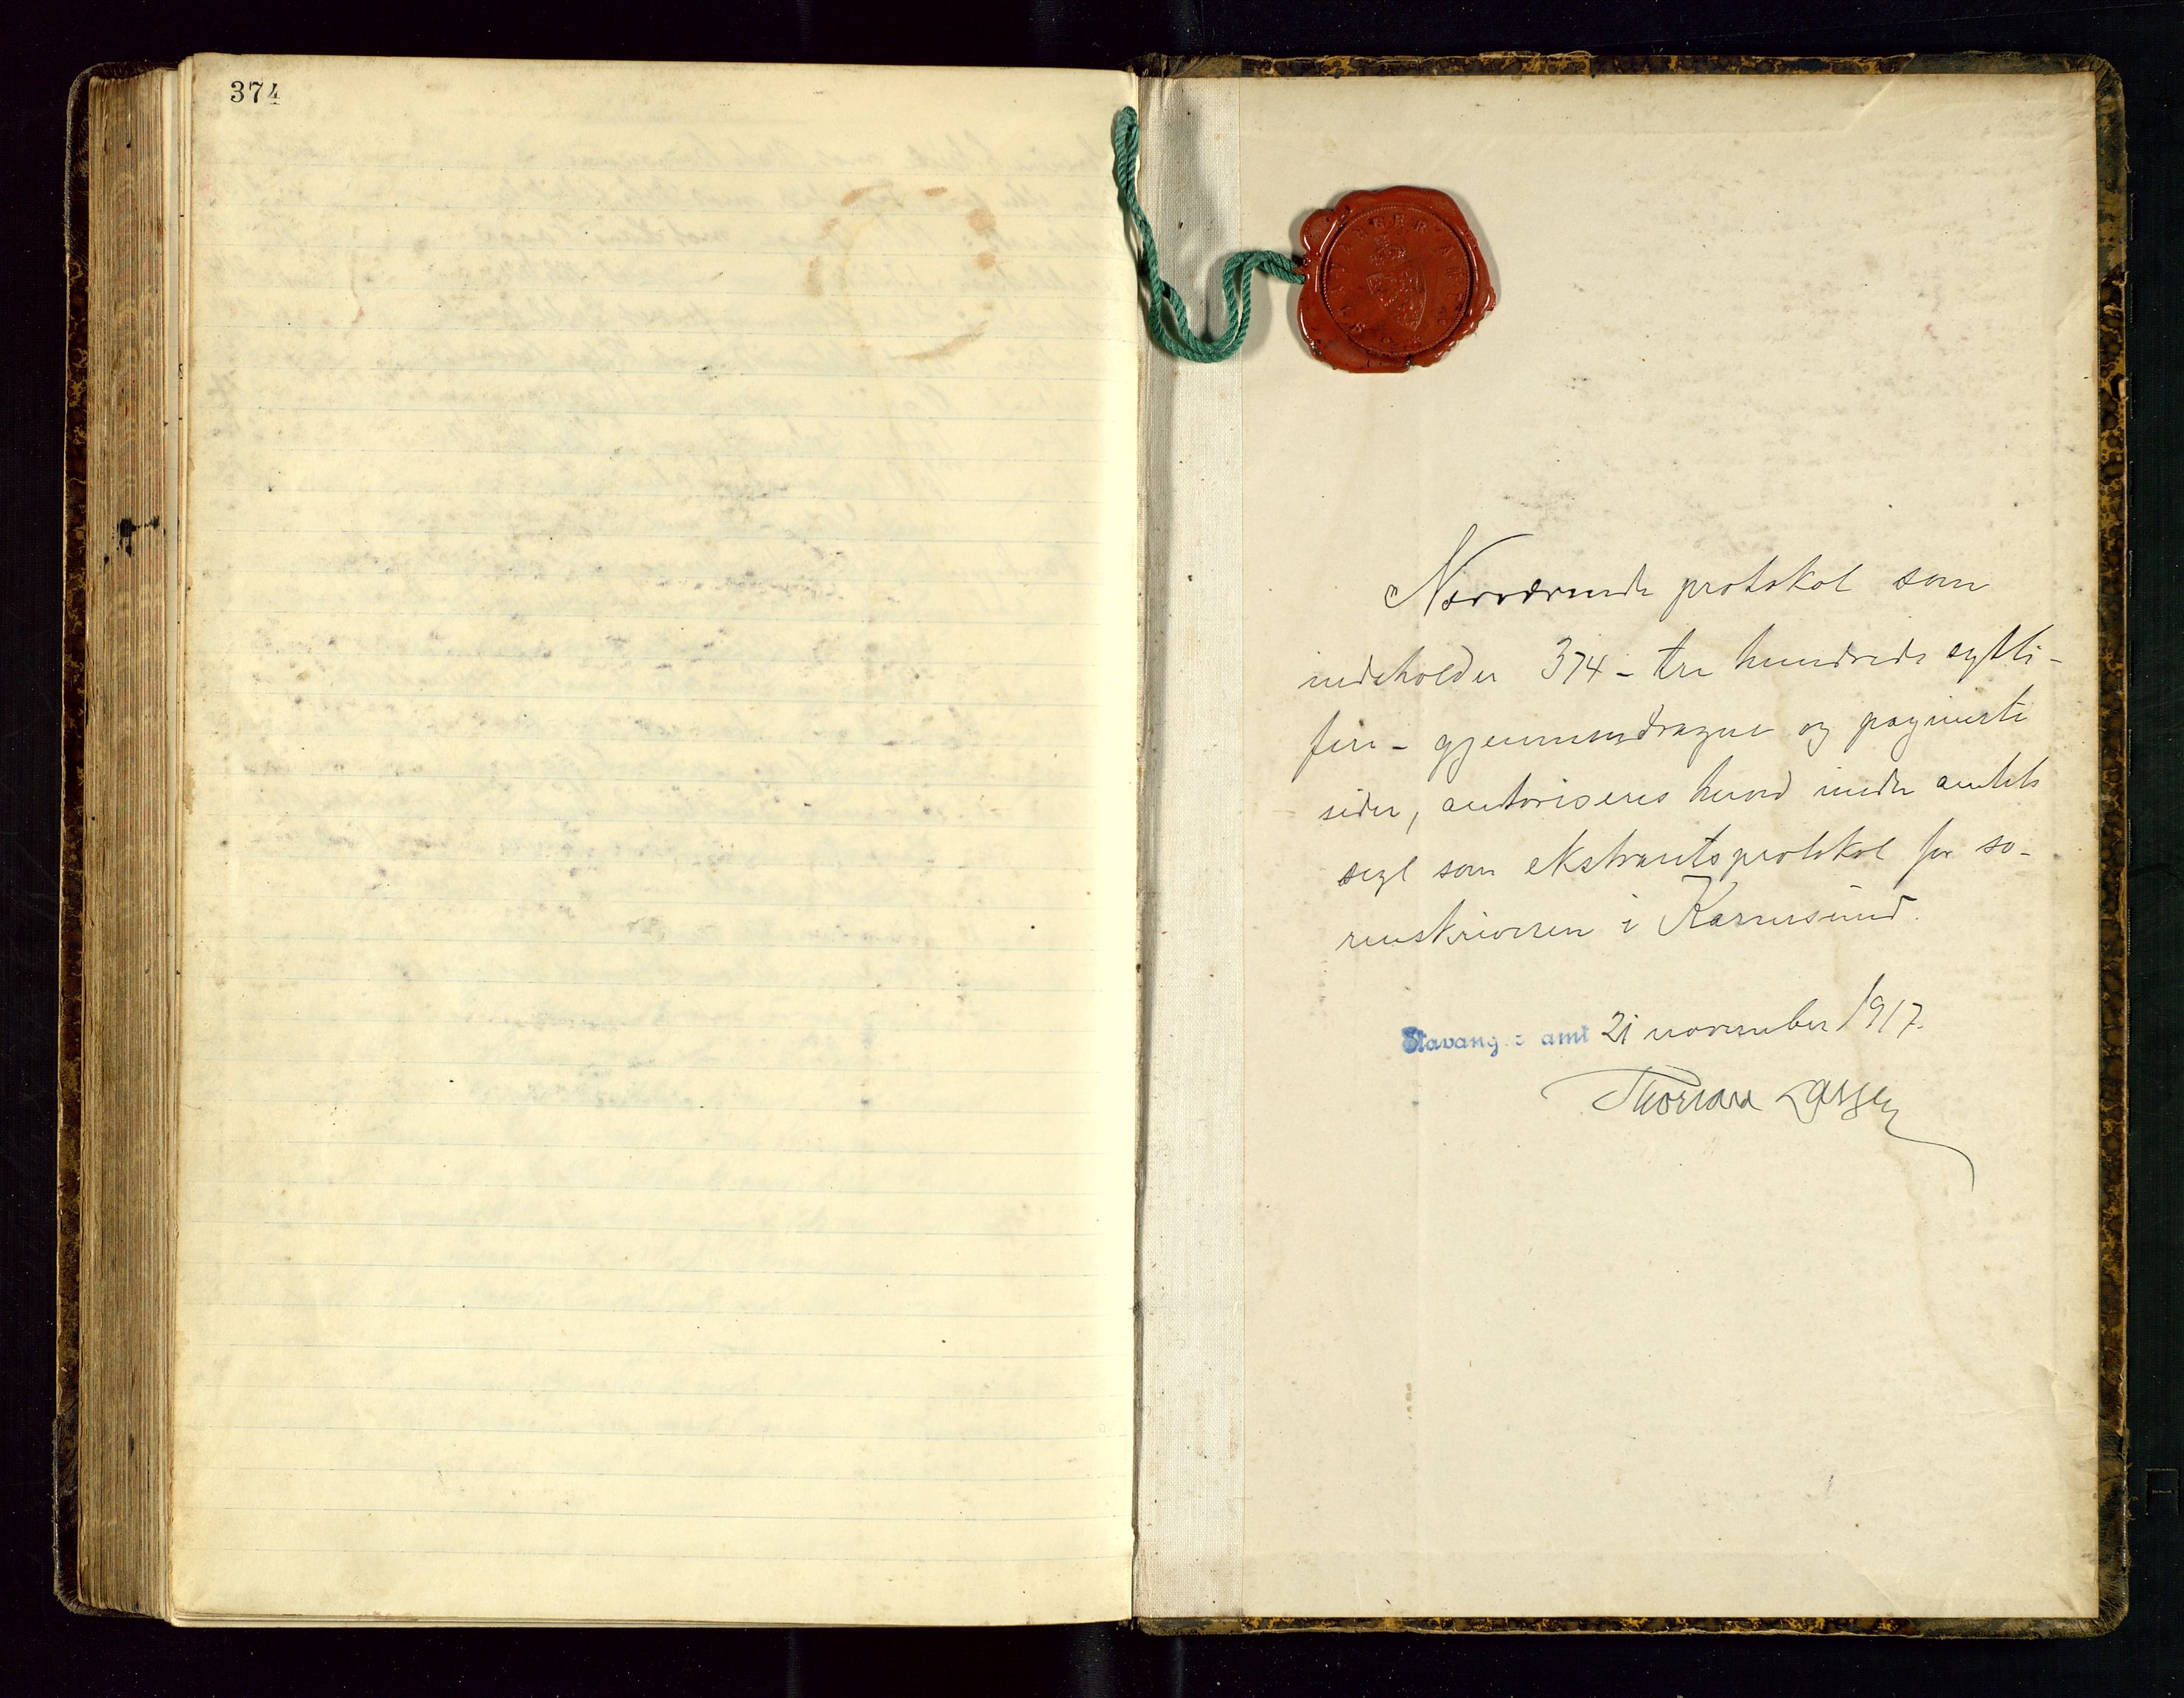 374
Nærværende protokol som
indeholder 374 - tre hundrede sytti-
fire - gjennemdragne og paginerte
sider, autoriseres herved under amtets
segl som ekstraretsprotokol for so-
renskriveren i Karmsund.
Stavanger amt 21 november 1917.
Thorvard Lassen